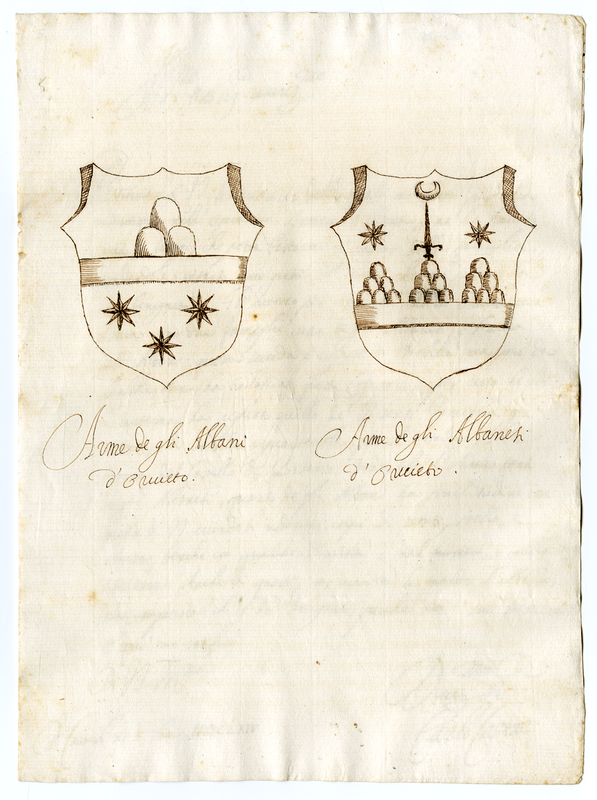 Arme degli Albani
d'Orvieto.
Arme degli Albanesi
d'Orvieto.